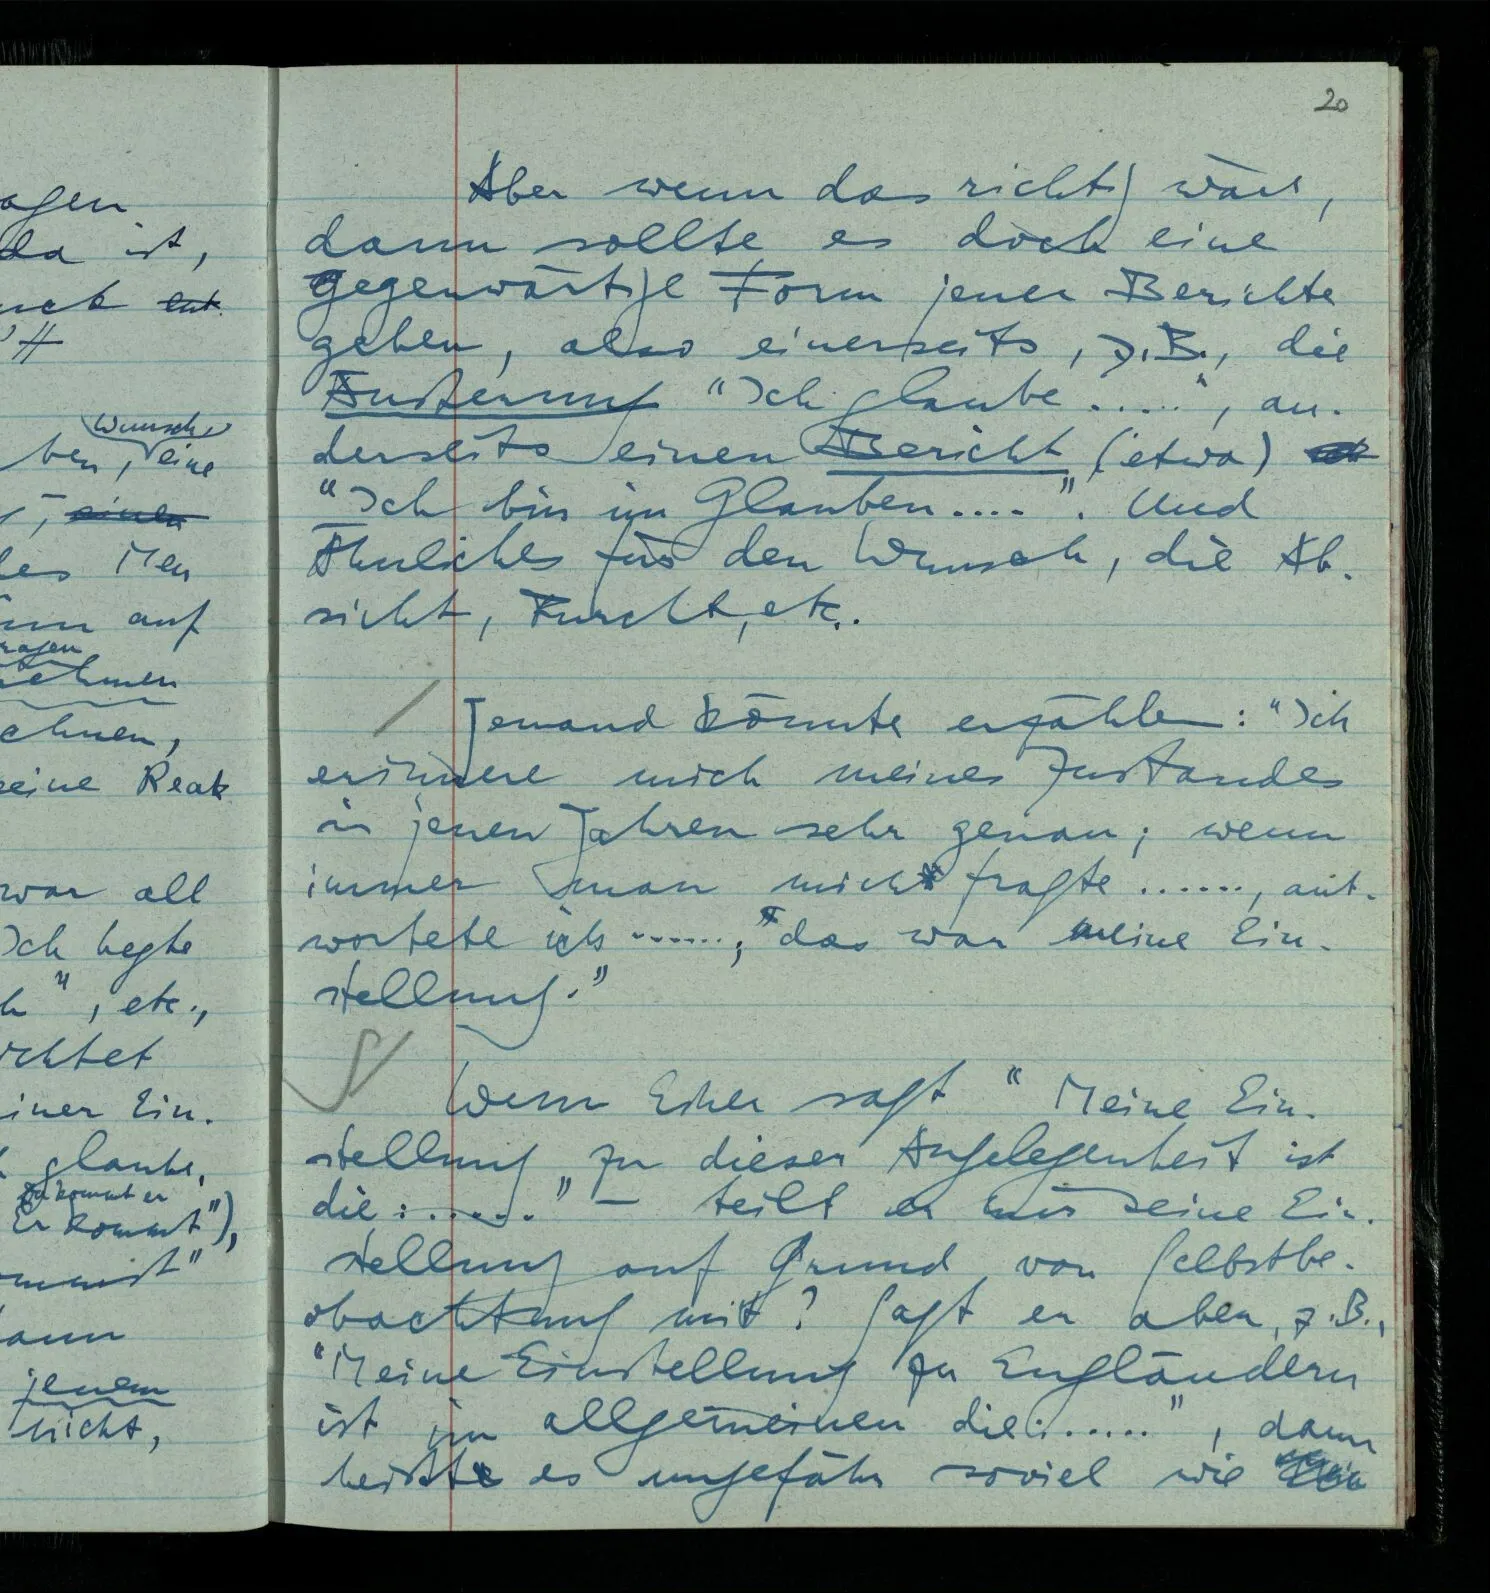 agen
da ist,
Wunsch
ben, eine
einen
des Men
auf
nehmen
chnen,
eine Reak
war all
Ich hegte
h", etc.,
chtet
einer Ein-
glaube,
da kommt er
Er kommt"),
kommt"
dann
jenem
nicht,
20
Aber wenn das richtig wäre,
dann sollte es doch eine
gegenwärtige Form jener Berichte
geben, also einerseits, z.B., die
Äusserung "Ich glaube .....", an-
derseits einen Bericht (etwa)
"Ich bin im Glauben....". Und
Ähnliches für den Wunsch, die Ab-
sicht, Furcht, etc..
Jemand könnte erzählen: "Ich
erinnere mich meines Zustandes
in jenen Jahren sehr genau; wenn
immer man mich fragte ......, ant-
wortete ich ......; das war meine Ein-
stellung."
Wenn Einer sagt "Meine Ein-
stellung zu dieser Angelegenheit ist
die: ....." – teilt er mir seine Ein-
stellung auf Grund von Selbstbe-
obachtung mit? Sagt er aber, z.B.,
"Meine Einstellung zu Engländern
ist im allgemeinen die: .....", dann
heißt es ungefähr soviel wie